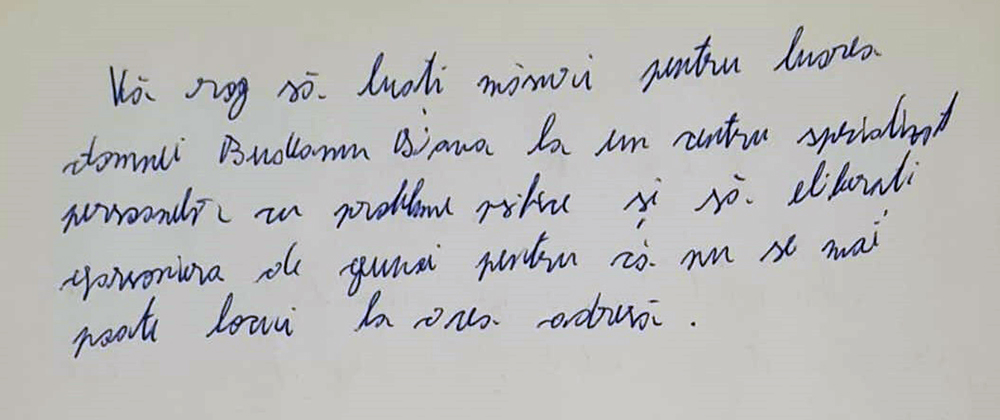 Vă rog să luați măsuri pentru luarea
domnei Budeanu Diana la un centru specializat
persoanelor cu probleme psihice și să eliberați
garsoniera de gunoi pentru că nu se mai
poate locui la acea adresă.